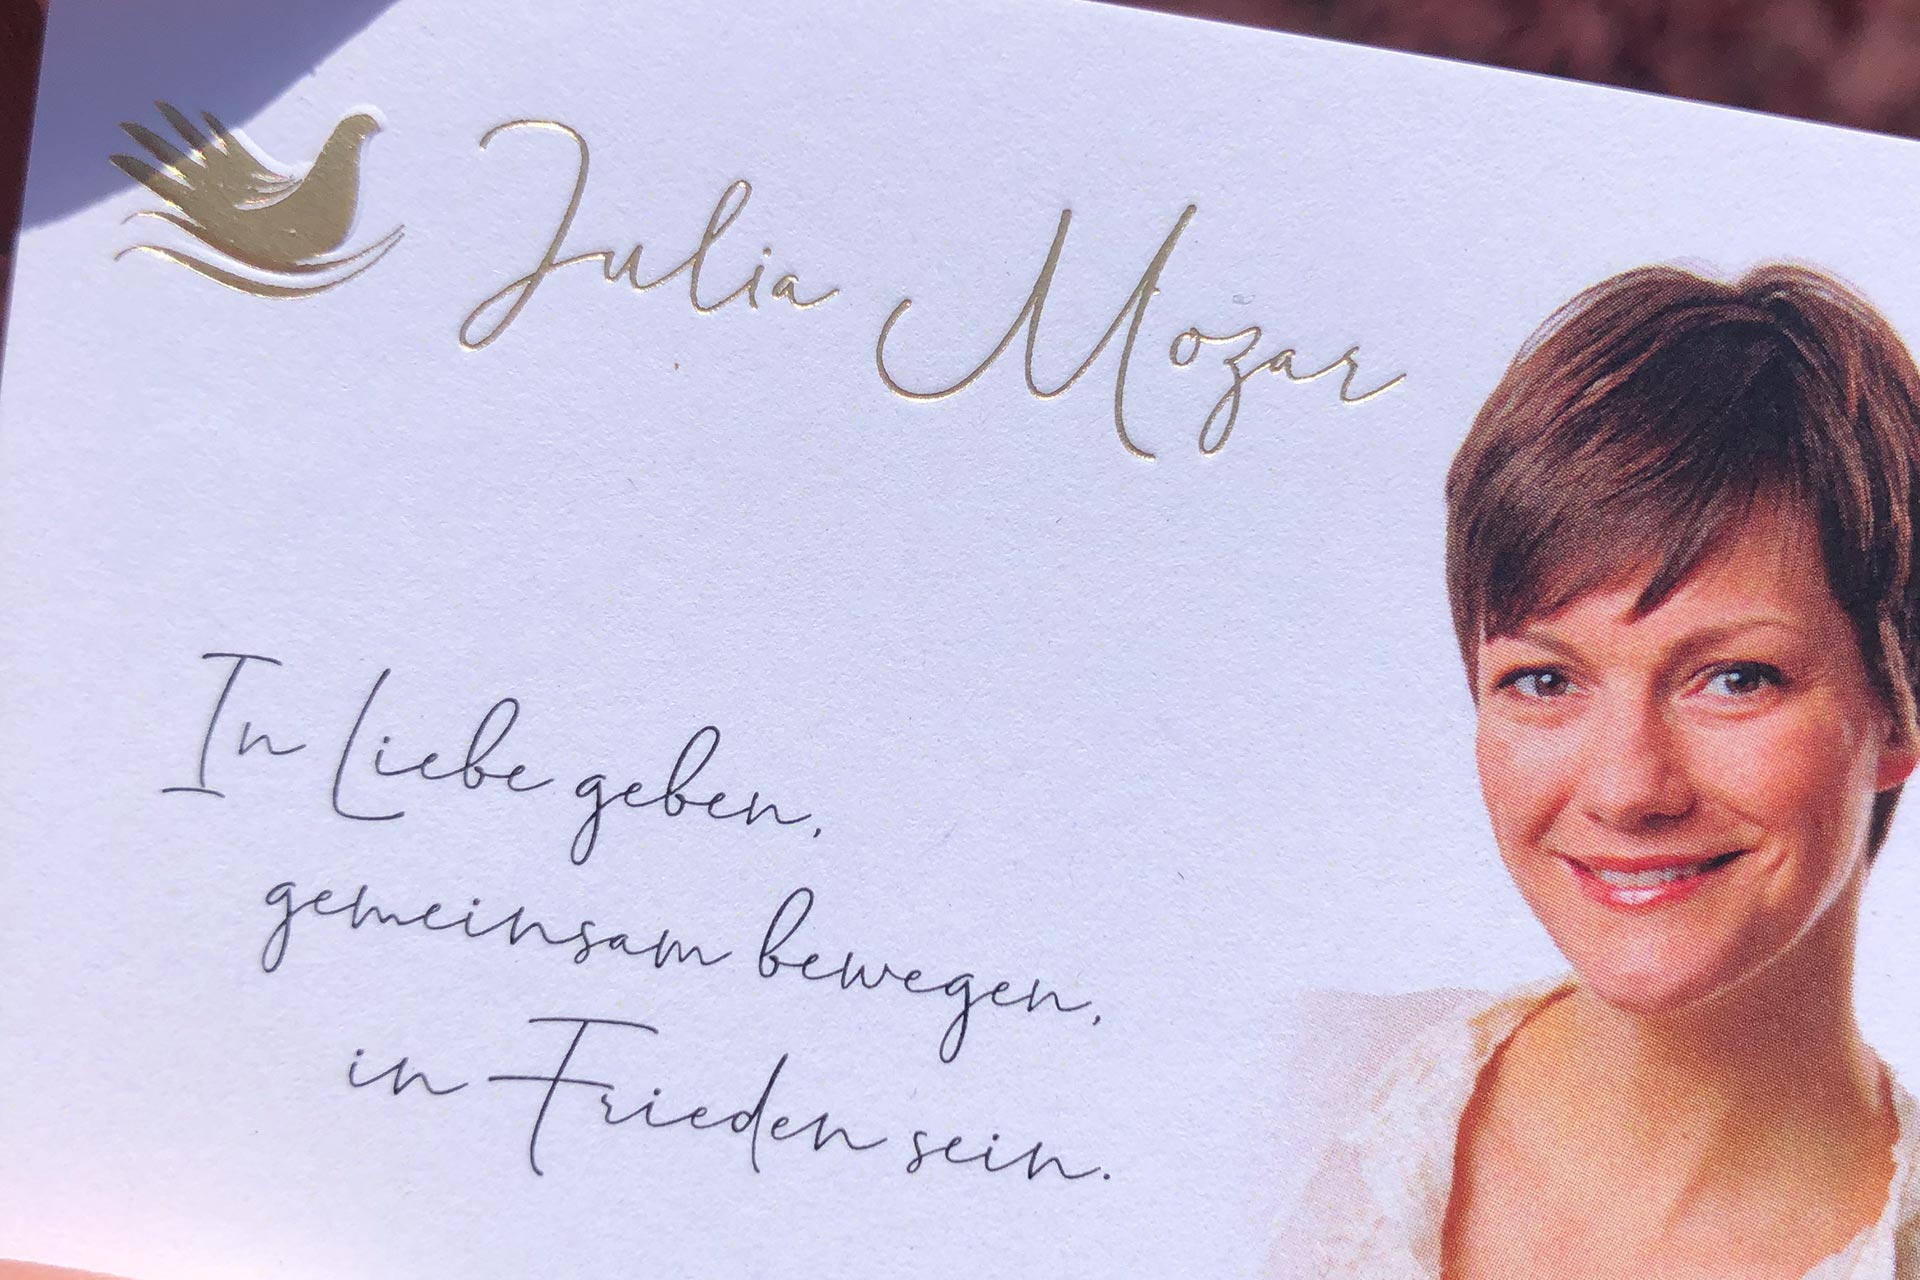 Julia Mozar
In Liebe geben,
gemeinsam bewegen,
in Frieden sein.